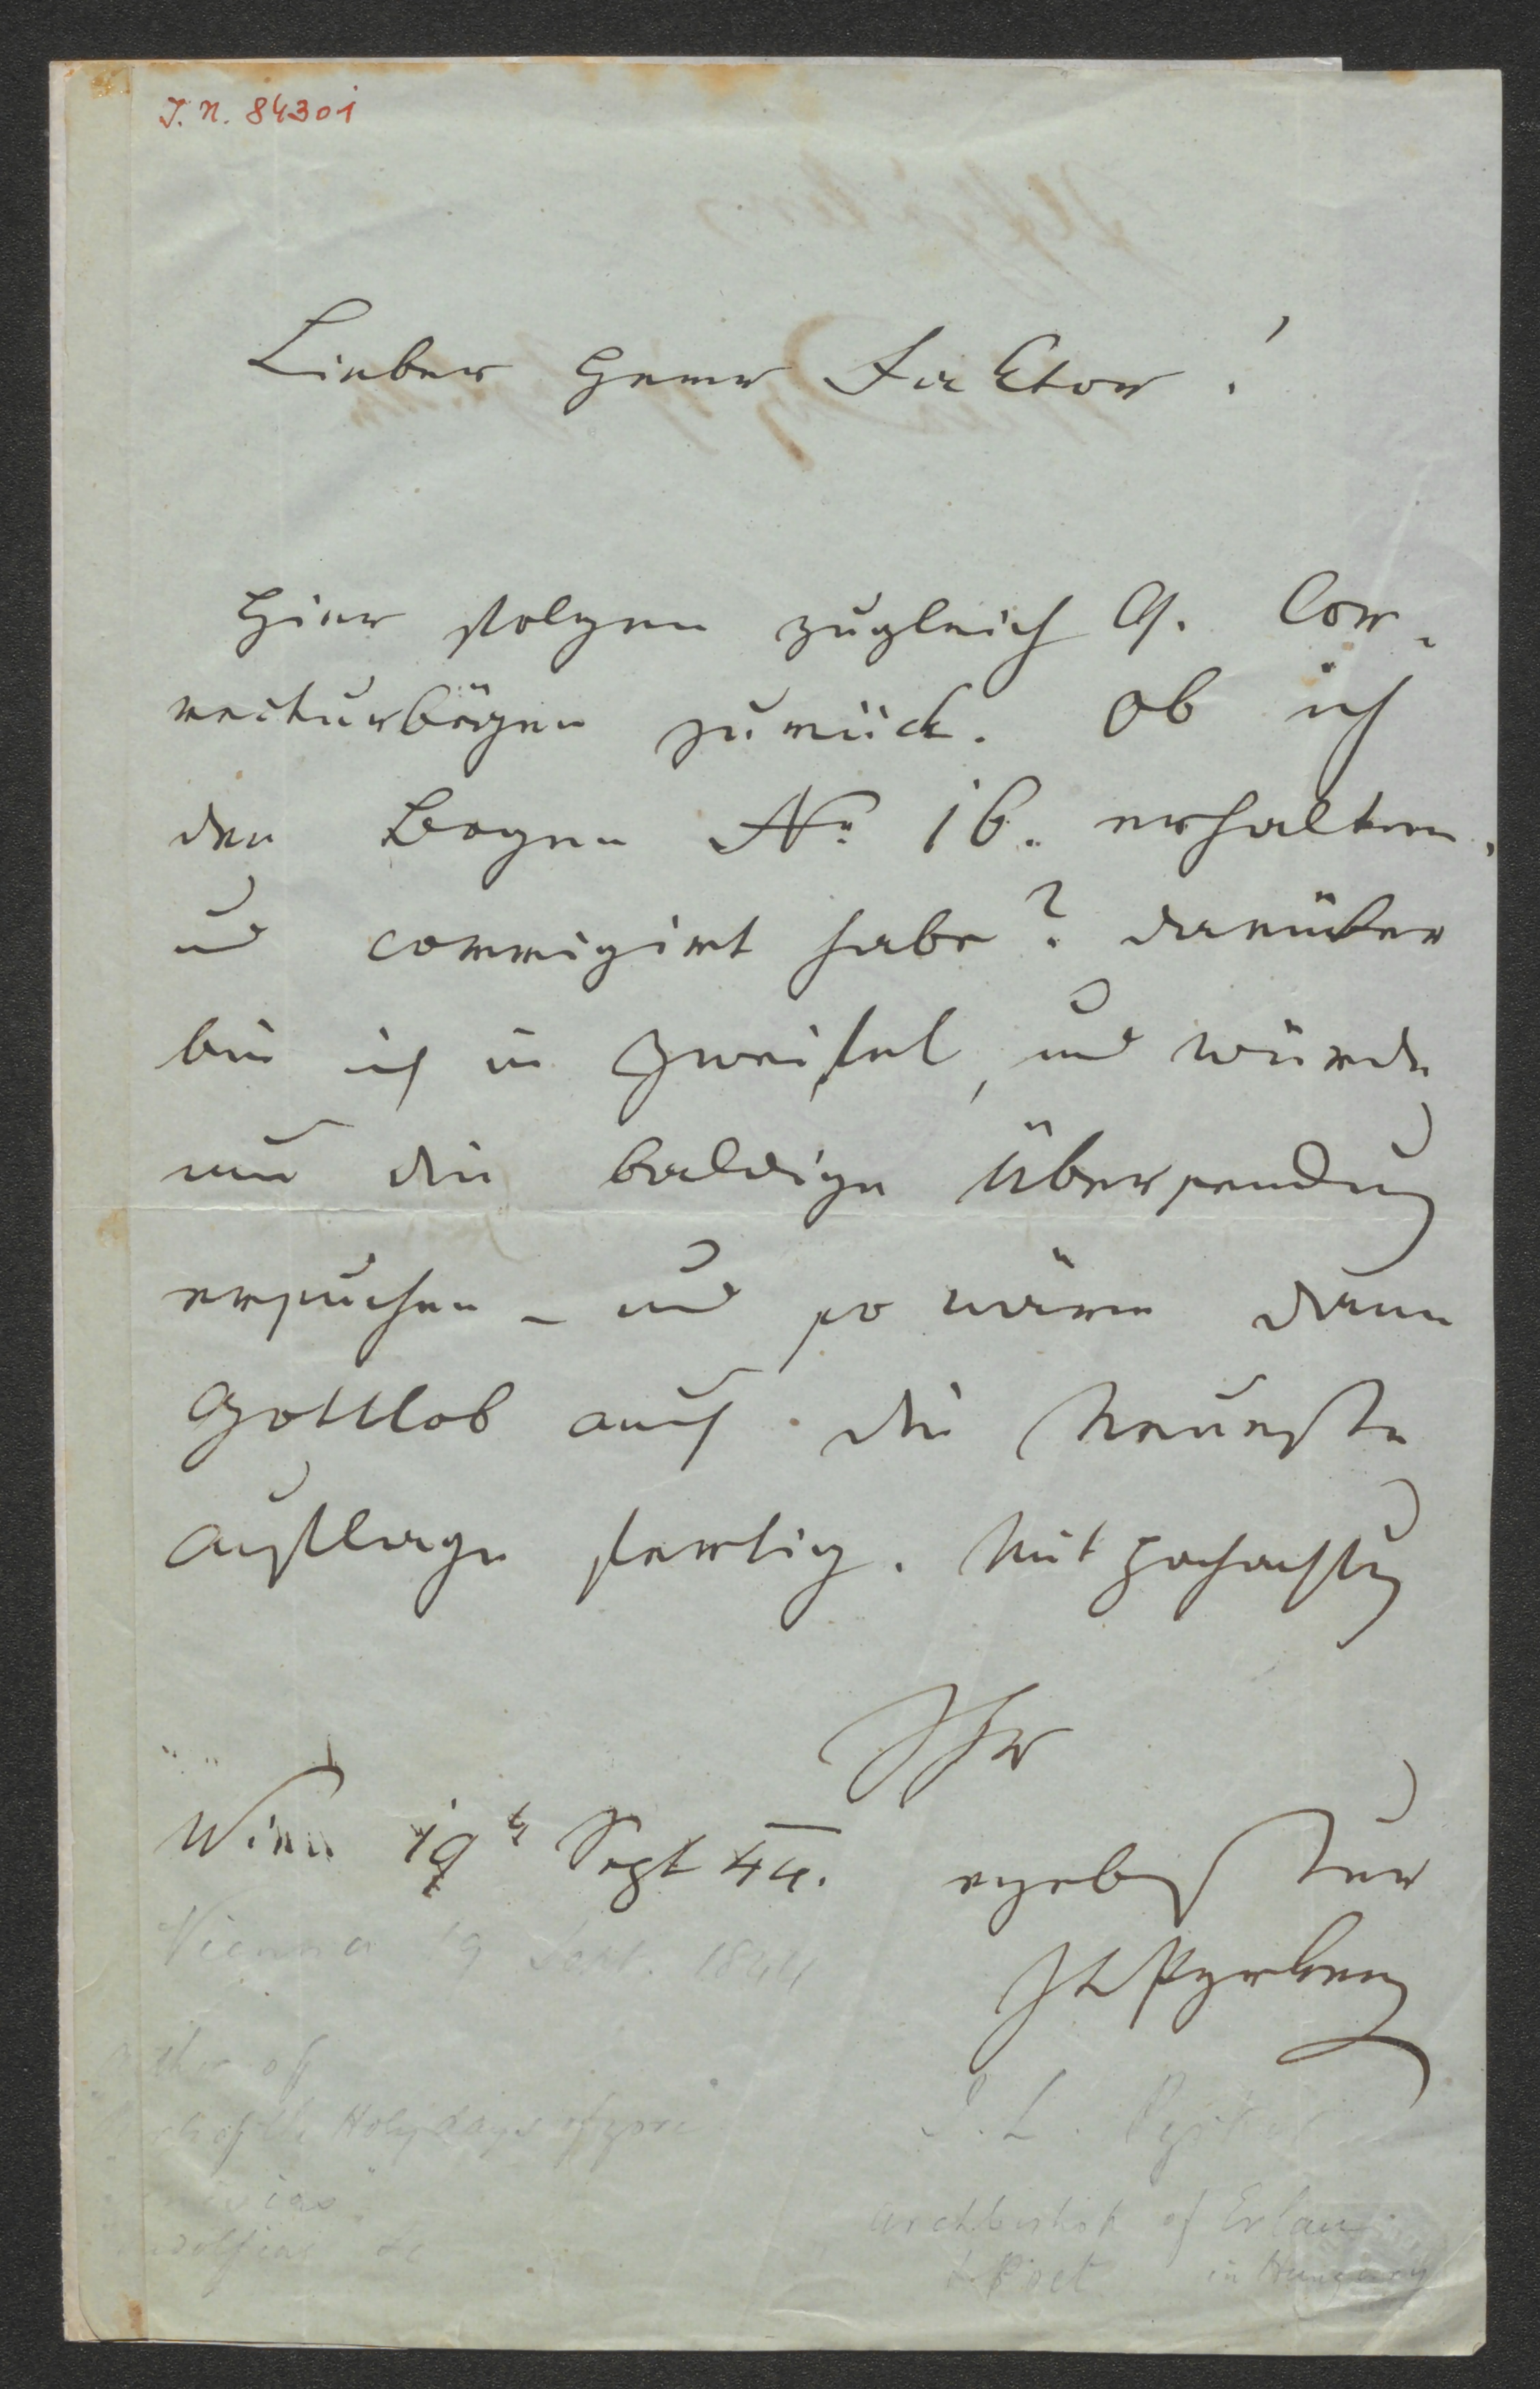 J. N. 84301
Lieber Herr Faktor!
Hier folgen zugleich 9. Cor-
recturbögen zurück. Ob ich
den Bogen No 16. erhalten,
und corrigirt habe? darüber
bin ich in Zweifel, und würde
um die baldige Übersendung
ersuchen – und so wäre dann
Gottlob auch die Neueste
Auflage fertig. Mit Hochachtung
Ihr
Wien 19t Sept 44.
ergebenster
JLPyrker
Vienna 19 Sept. 1844
of the Holy days of yore
J. L. Pyrker
Archbishop of Erlau
& Poet in Hungary